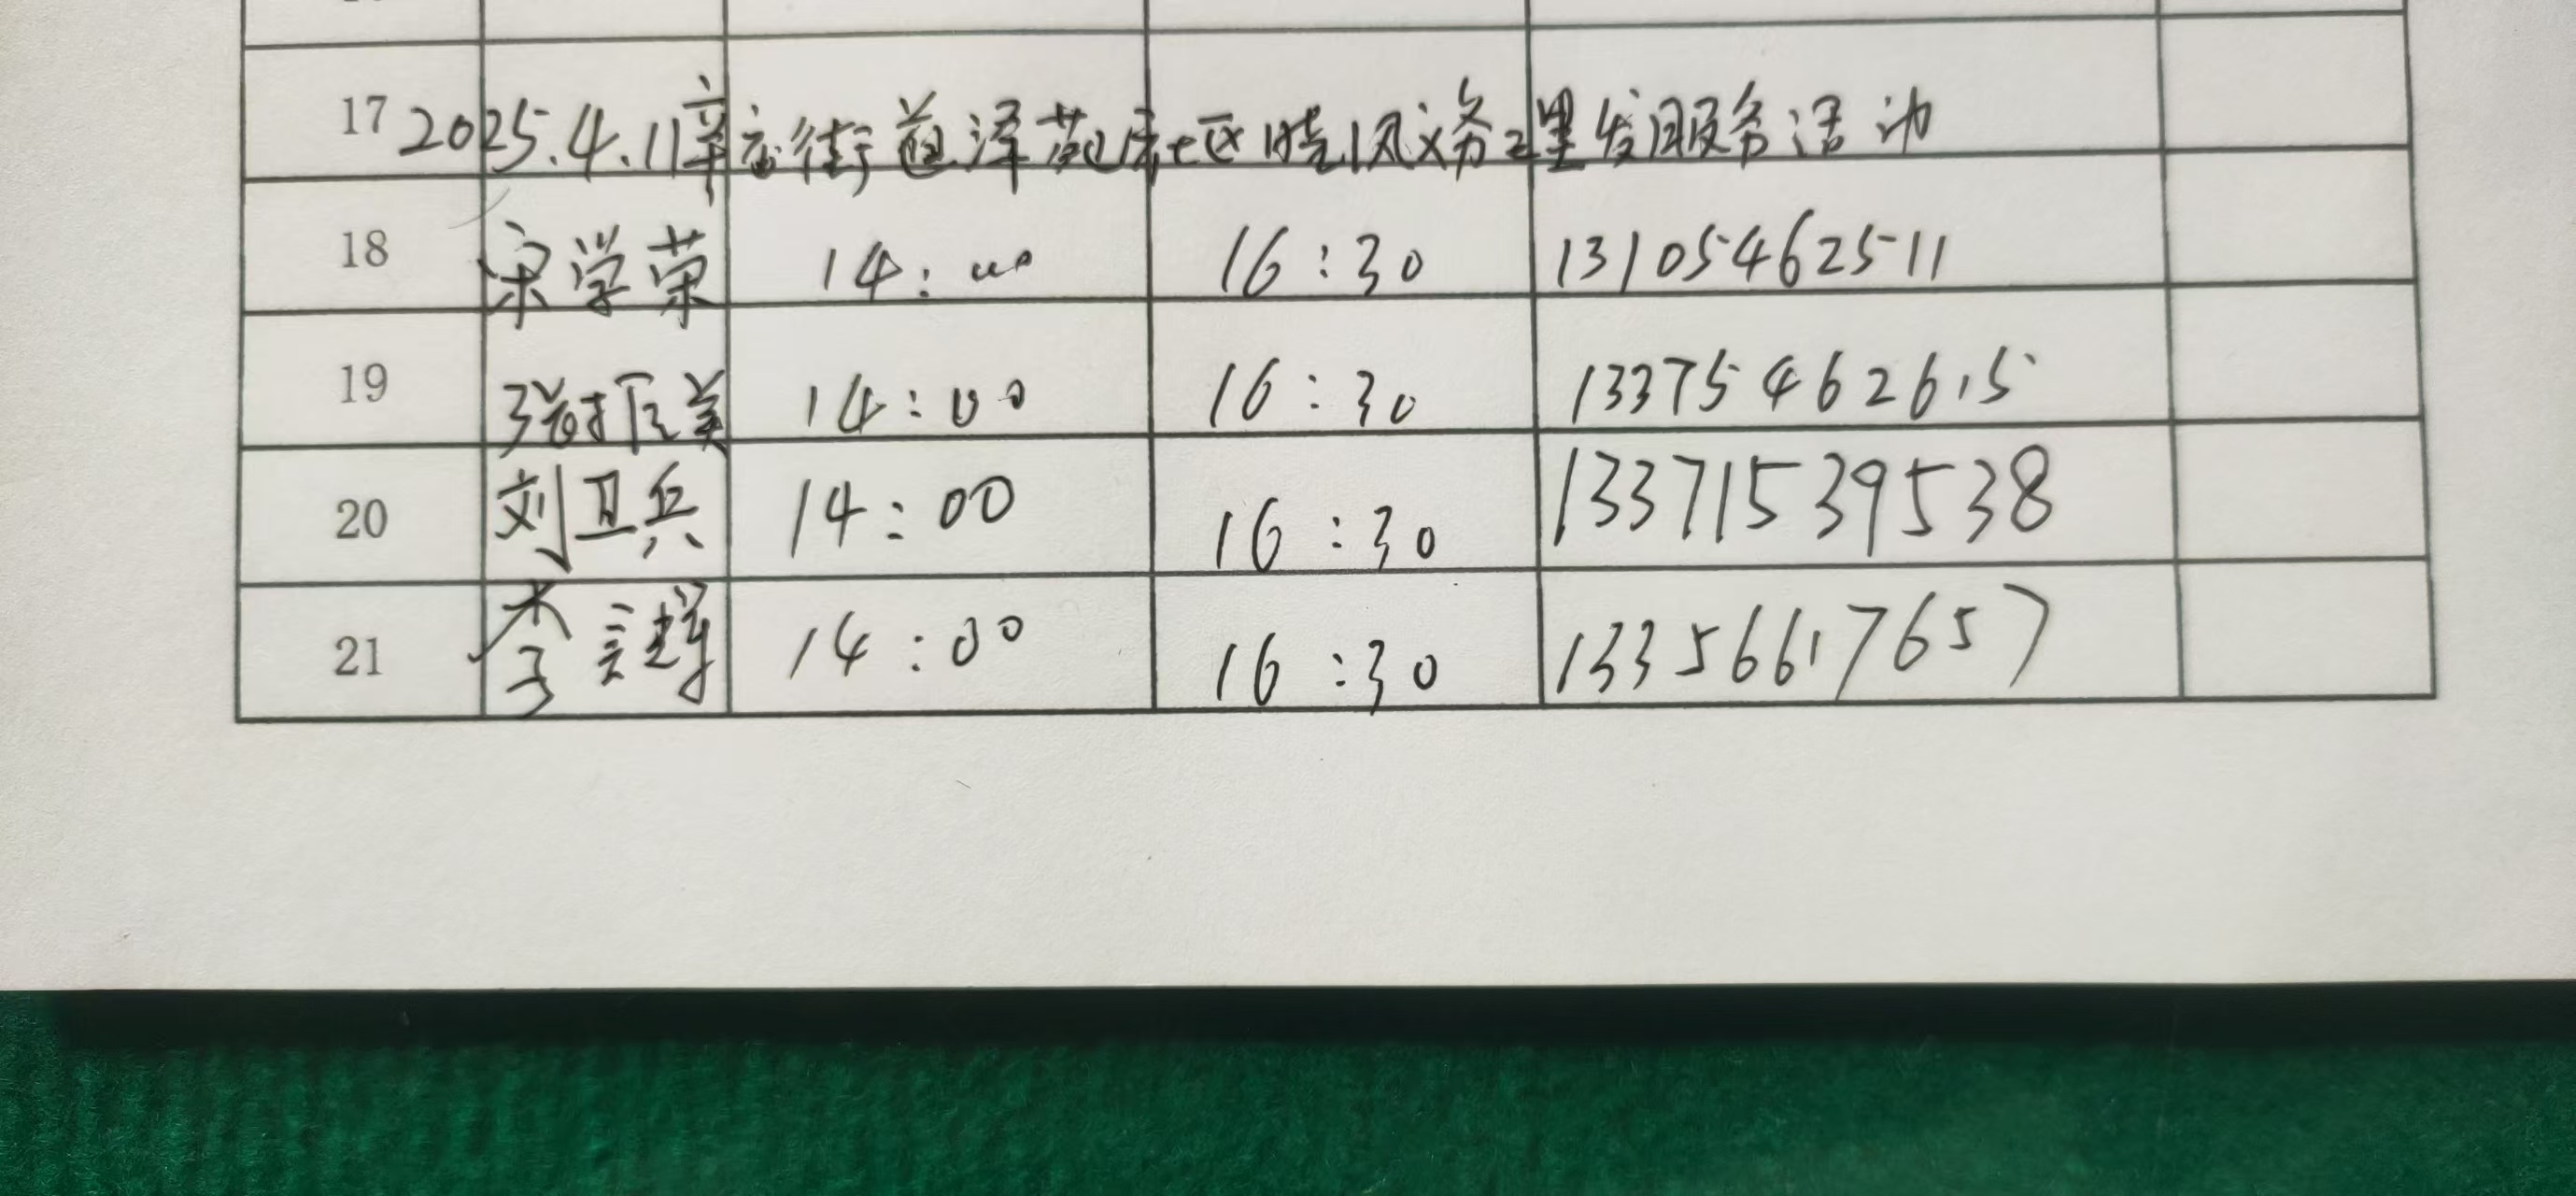 17 2025.4.11辛店街道泽苑社区晓风义务理发服务活动
18 宋学荣 14:00 16:30 13105462511
19 美 14:00 16:30 13375462615
20 刘卫兵 14:00 16:30 13371539538
21 李 14:00 16:30 13356617657